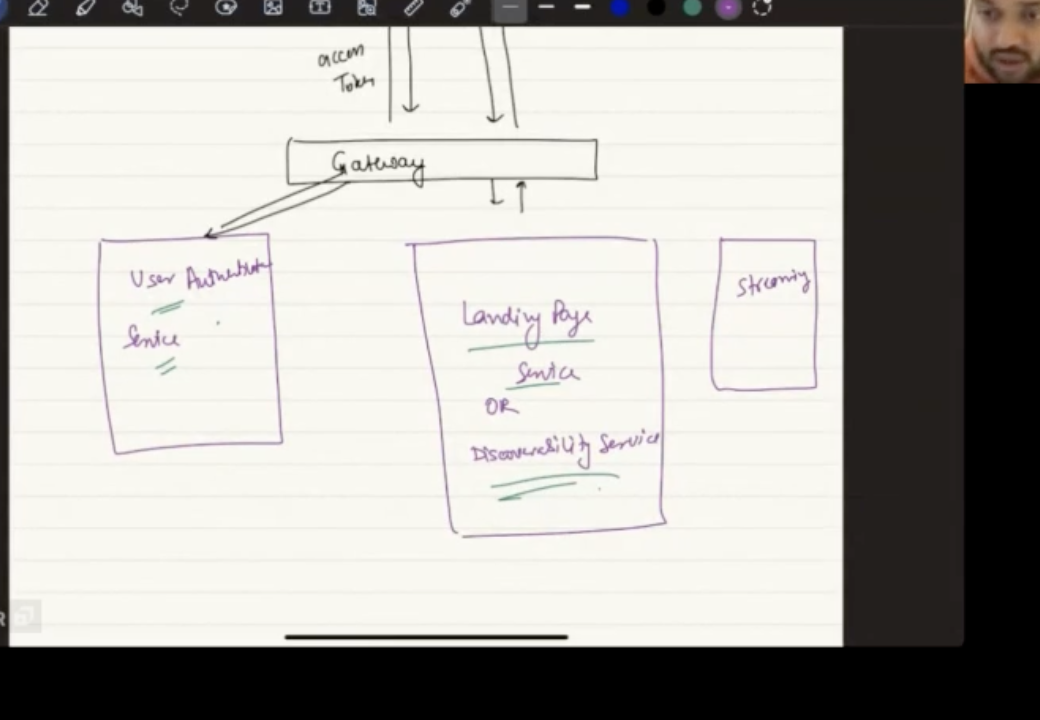 access
Token
Gateway
User Authentication
Service
Landing Page
Service
OR
Discoverability Service
Streaming
R